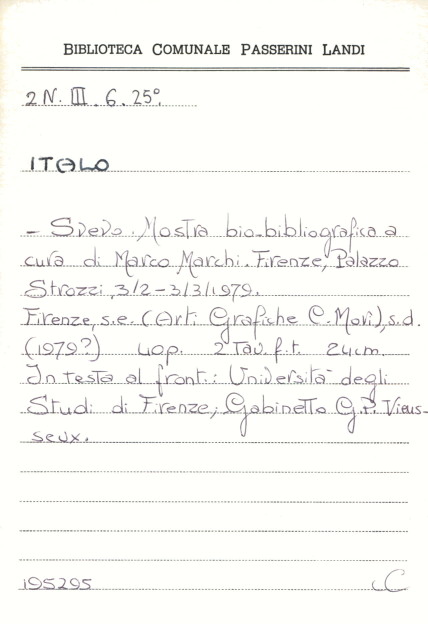 BIBLIOTECA COMUNALE PASSERINI LANDI
2 N. III. 6. 25°.
ITALO
- Svevo. Mostra bio-bibliografica a
cura di Marco Marchi. Firenze, Palazzo
Strozzi, 3/2-3/3/1979.
Firenze, s.e. (Arti Grafiche C. Mori), s.d.
(1979?) 40p. 2 Tav. f.t. 24cm.
In testa al front.: Università degli
Studi di Firenze; Gabinetto G.P. Vieus-
seux.
195295 C